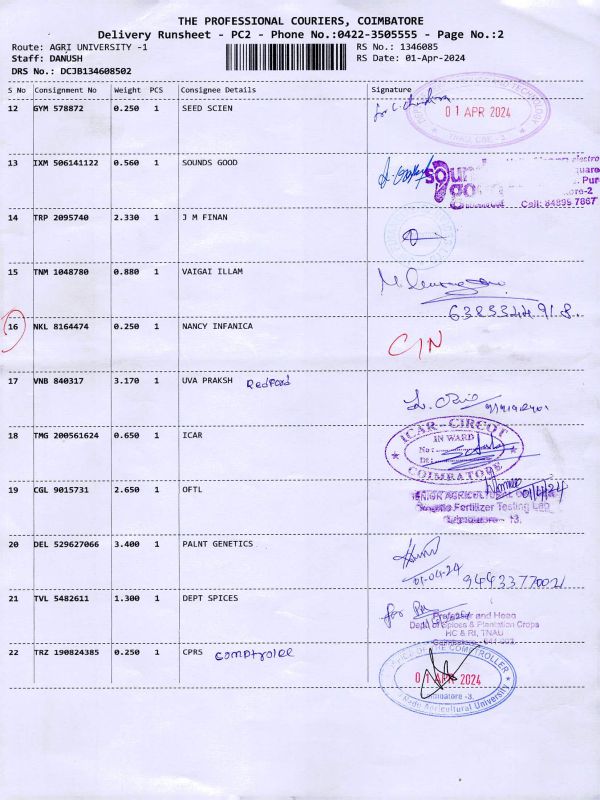 THE PROFESSIONAL COURIERS, COIMBATORE
Delivery Runsheet - PC2 - Phone No.:0422-3505555 - Page No.:2
Route: AGRI UNIVERSITY -1 RS No.: 1346085
Staff: DANUSH RS Date: 01-Apr-2024
DRS No.: DCJB134608502
S No Consignment No Weight PCS Consignee Details Signature
12 GYM 578872 0.250 1 SEED SCIEN for
01 APR 2024
13 IXM 506141122 0.560 1 SOUNDS GOOD
Cell: 84899 7867
14 TRP 2095740 2.330 1 J M FINAN
15 TNM 1048780 0.880 1 VAIGAI ILLAM
16 NKL 8164474 0.250 1 NANCY INFANICA
17 VNB 840317 3.170 1 UVA PRAKSH Redford
18 TMG 200561624 0.650 1 ICAR
ICAR-CIRCOT
IN WARD
No:
Dt:
COIMBATORE
19 CGL 9015731 2.650 1 OFTL 01/4/24
SENIOR AGRICULTURAL
Fertilizer Testing Lab
20 DEL 529627066 3.400 1 PALNT GENETICS
01-04-24
9443377002
21 TVL 5482611 1.300 1 DEPT SPICES for
Professor and Head
Dept. of Spices & Plantation Crops
HC & RI, TNAU
22 TRZ 190824385 0.250 1 CPRS comptroller
OFFICE OF THE COMPTROLLER
01 APR 2024
Coimbatore -3.
Agricultural University